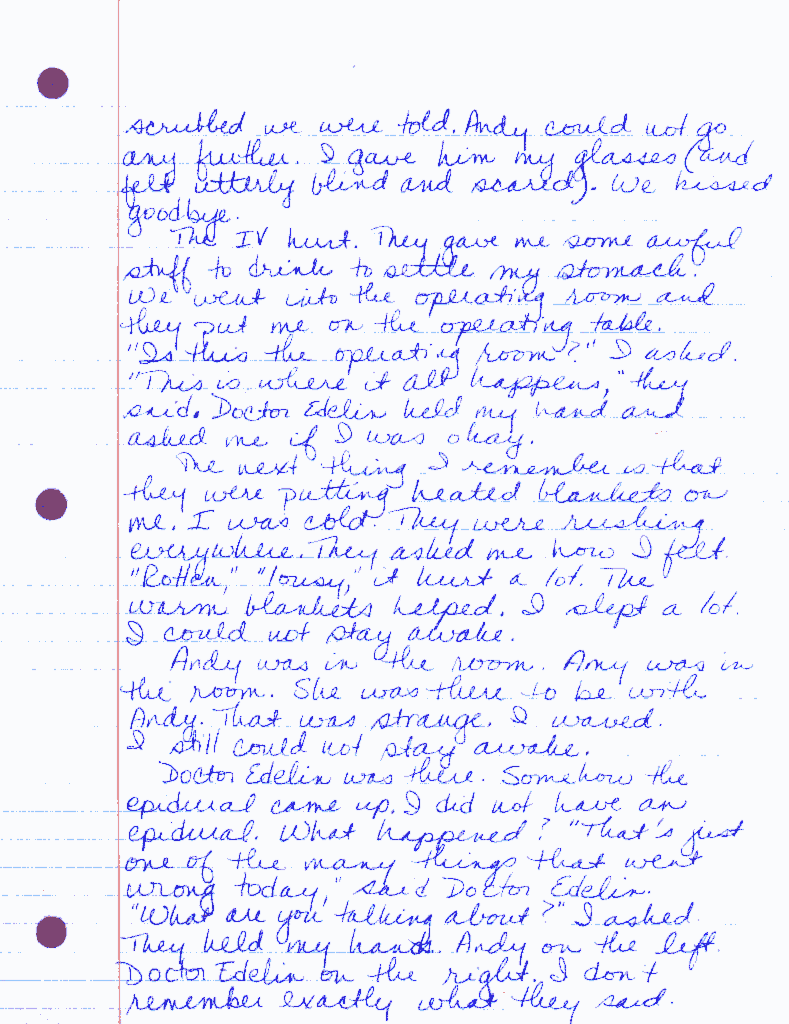 scrubbed we were told. Andy could not go
any further. I gave him my glasses (and
felt utterly blind and scared). We kissed
goodbye.
The IV hurt. They gave me some awful
stuff to drink to settle my stomach.
We went into the operating room and
they put me on the operating table.
"Is this the operating room?" I asked.
"This is where it all happens," they
said. Doctor Edelin held my hand and
asked me if I was okay.
The next thing I remember is that
they were putting heated blankets on
me. I was cold. They were rushing
everywhere. They asked me how I felt.
"Rotten," "lousy," it hurt a lot. The
warm blankets helped. I slept a lot.
I could not stay awake.
Andy was in the room. Amy was in
the room. She was there to be with
Andy. That was strange. I waved.
I still could not stay awake.
Doctor Edelin was there. Somehow the
epidural came up. I did not have an
epidural. What happened? "That's just
one of the many things that went
wrong today," said Doctor Edelin.
"What are you talking about?" I asked.
They held my hands. Andy on the left.
Doctor Edelin on the right. I don't
remember exactly what they said.